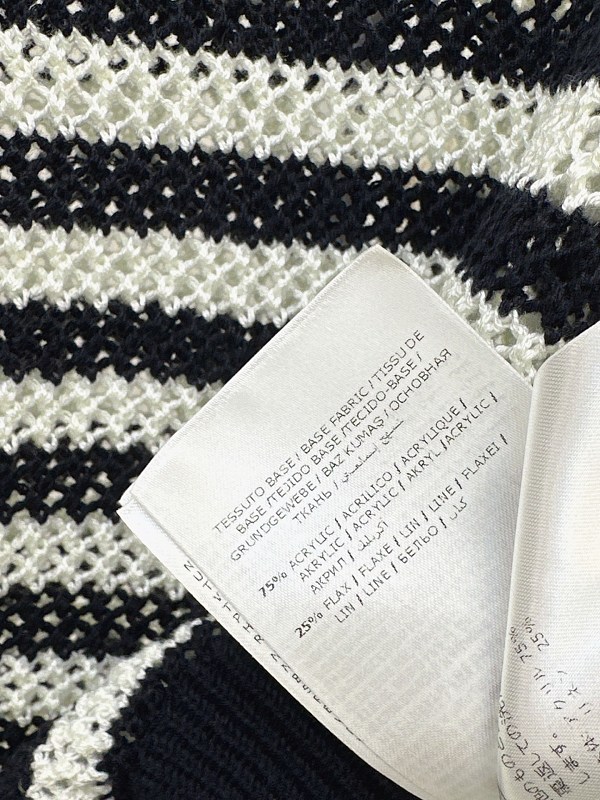 TESSUTO BASE / BASE FABRIC / TISSU DE
BASE /TEJIDO BASE /TECIDO-BASE /
GRUNDGEWEBE / BAZ KUMAŞ / ОСНОВНАЯ
ТКАНЬ /
75% ACRYLIC / ACRILICO / ACRYLIQUE /
AKRYLIC / ACRYLIC / AKRYL /ACRYLIC /
АКРИЛ / أكريليك
25% FLAX / FLAXE / LIN / LINE / FLAXEI /
LIN / LINE / БЕЛЬО / كتان
アクリル 75%
リネン 25%
します。